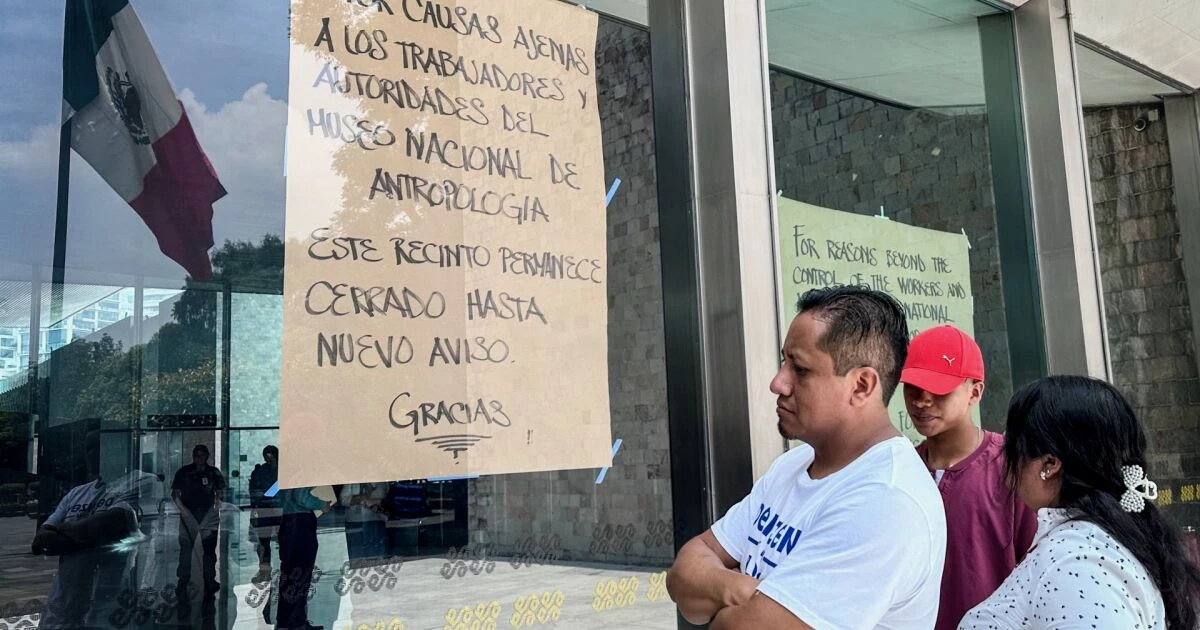 POR CAUSAS AJENAS
A LOS TRABAJADORES Y
AUTORIDADES DEL
MUSEO NACIONAL DE
ANTROPOLOGIA
ESTE RECINTO PERMANECE
CERRADO HASTA
NUEVO AVISO.
GRACIAS !!
FOR REASONS BEYOND THE
CONTROL OF THE WORKERS AND